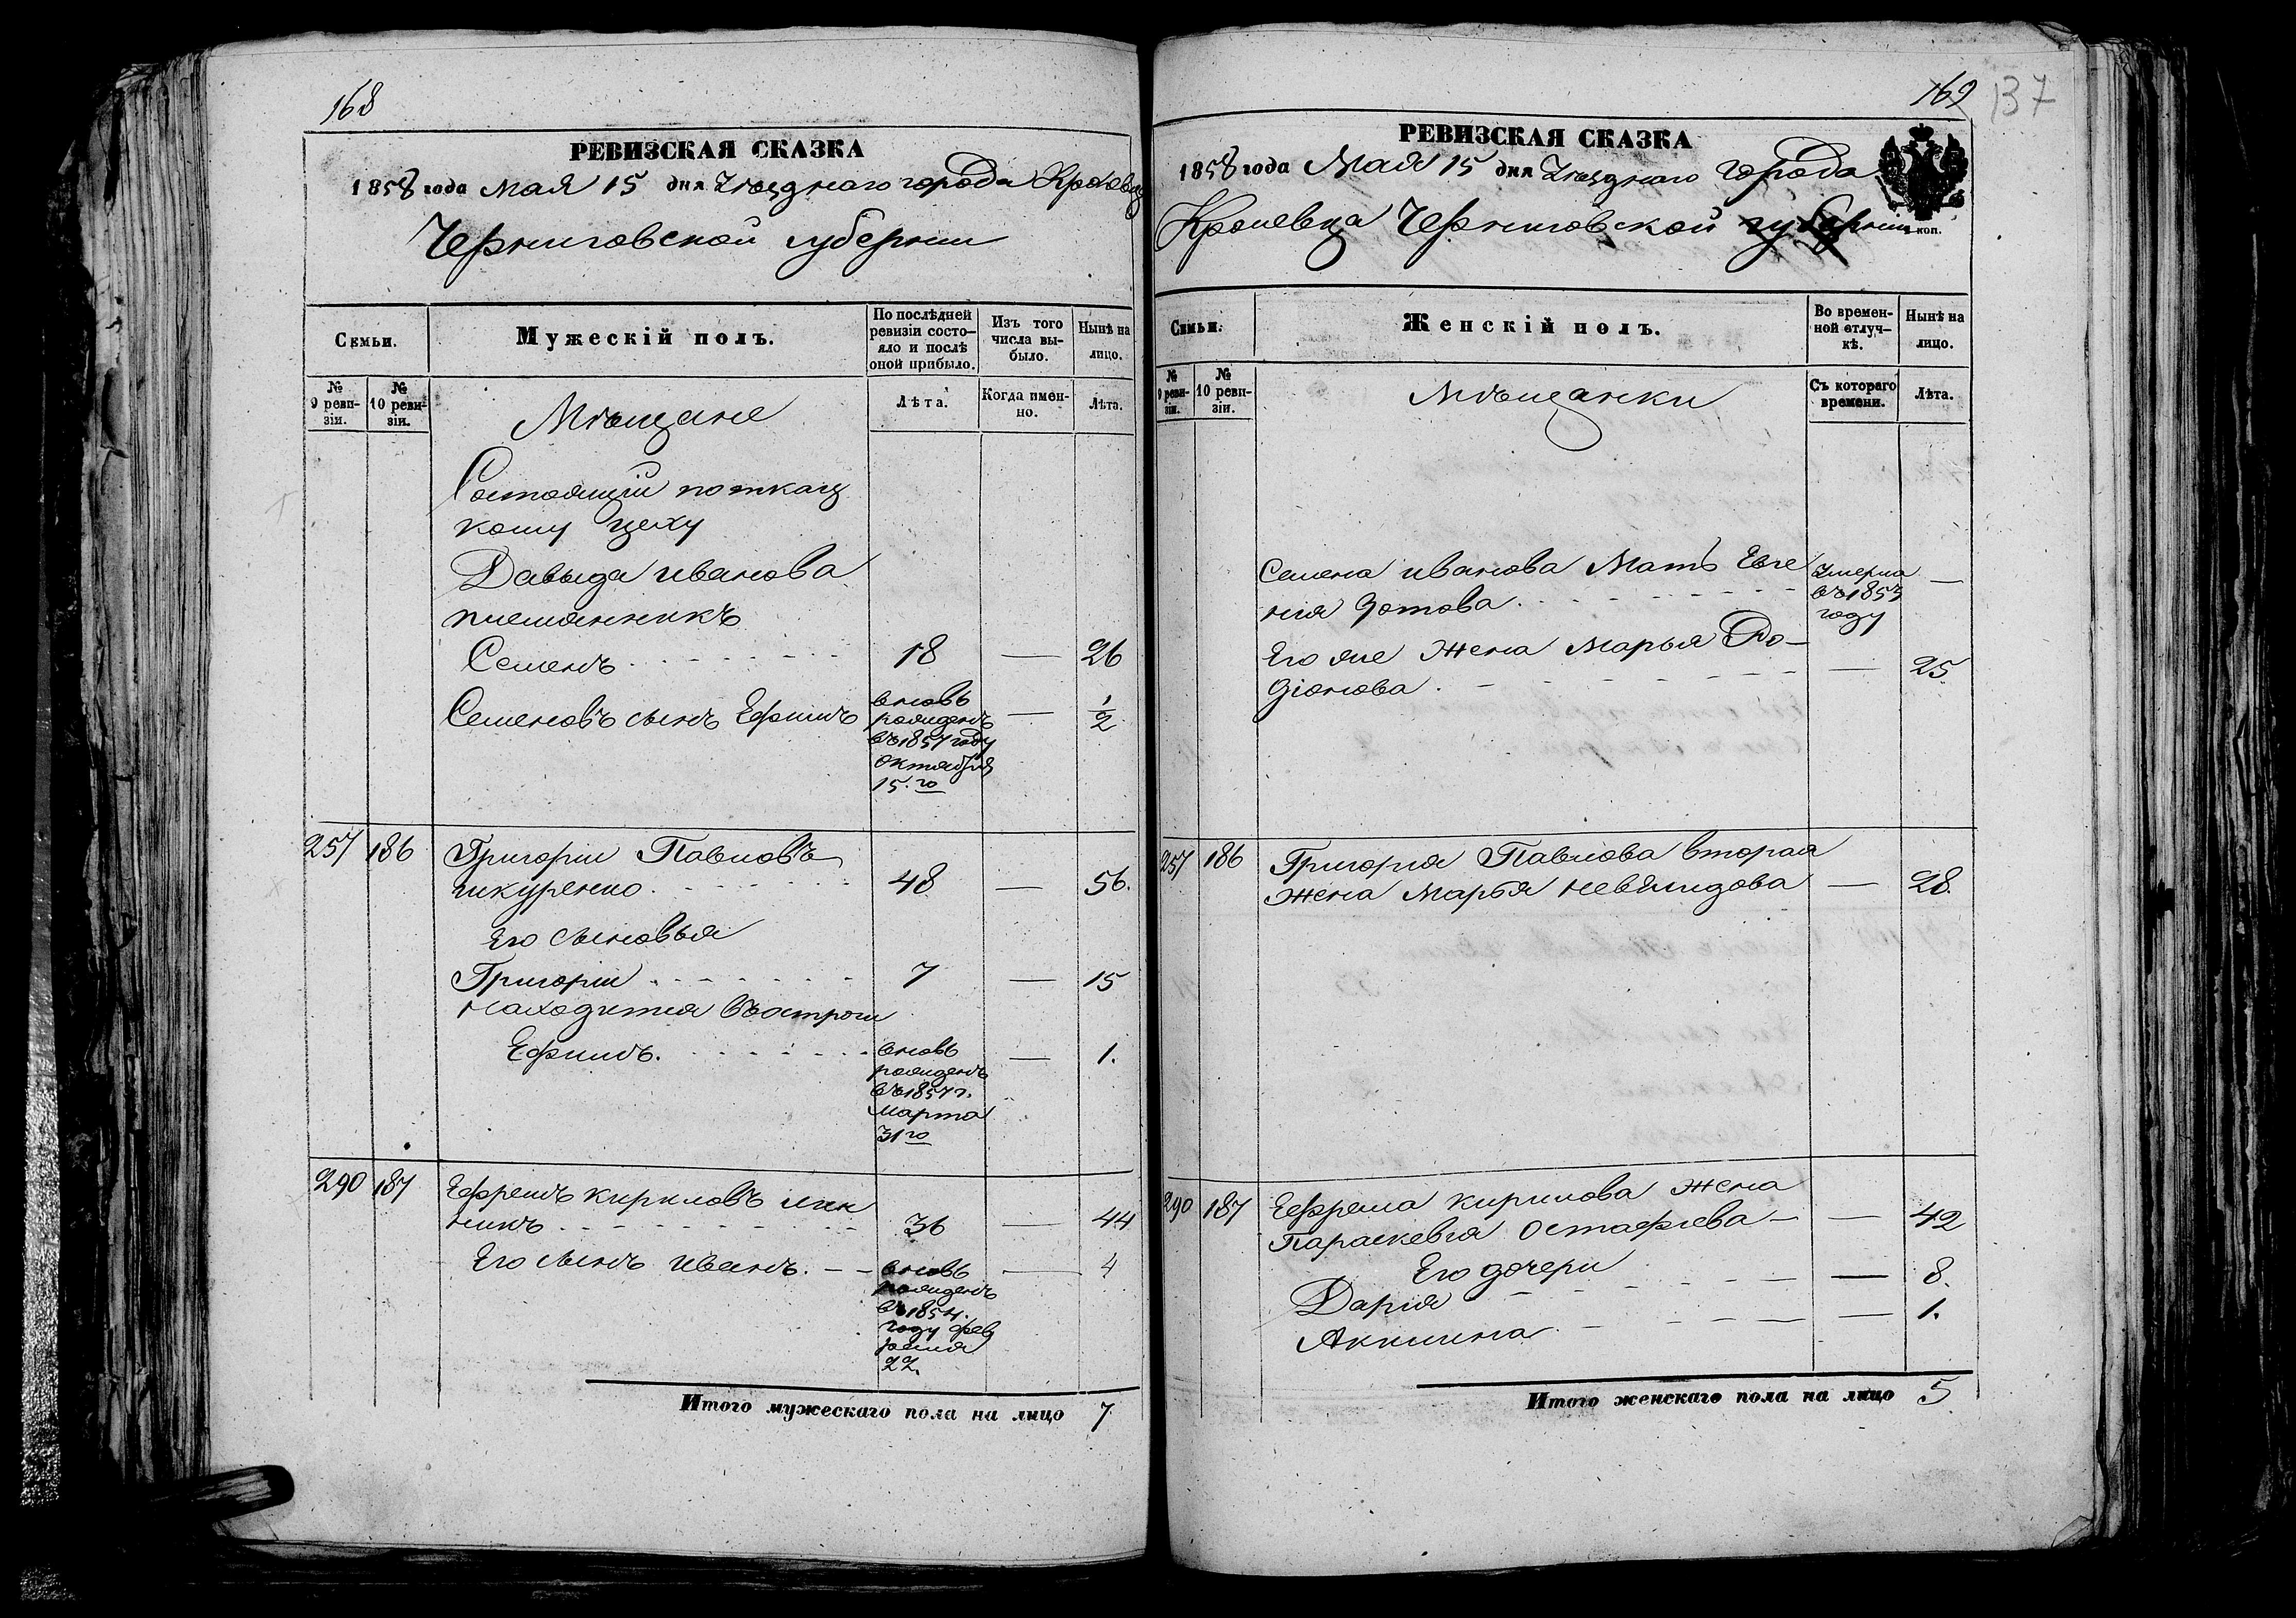 168
РЕВИЗСКАЯ СКАЗКА
1858 года Мая 15 дня Уѣзднаго города Кролевца
Черниговской губернии
Семьи.
Мужескій полъ.
По послѣдней ревизіи состо-
яло и послѣ оной прибыло.
Изъ того числа вы-
было.
Нынѣ на лицо.
№ 9 реви-
зіи.
№ 10 реви-
зіи.
Мѣщане
Лѣта.
Когда имен-
но.
Лѣта.
Состоящіи поткац
кому цеху
Давыда иванова
племянникъ
Семенъ 18 — 26
Семеновъ сынъ Ефимъ вновь — 1/2
рожденъ
въ 1857 году
октября
15.го
257 186 Григории Павловъ
шкуренко 48 — 56.
Его сыновья
Григории 7 — 15
находится въ острогѣ
Ефимъ. вновь — 1.
рожденъ
въ 1857 г.
Марта
31го
290 187 Ефремъ кириловъ лин
никъ 36 — 44
Его сынъ иванъ. — — вновь — 4
рожденъ
въ 1854.
году фев
раля
22.
Итого мужескаго пола на лицо 7
169
137
РЕВИЗСКАЯ СКАЗКА
1858 года Мая 15 дня Уѣзднаго города
Кролевца Черниговской губернии
коп.
Семьи.
Женскій полъ.
Во времен-
ной отлуч-
кѣ.
Нынѣ на лицо.
№ 9 реви-
зіи.
№ 10 реви-
зіи.
Мѣщанки
Съ котораго времени.
Лѣта.
Семена иванова Мать Евге Умерла —
нія Зотова. въ 1853
году
Его же жена Марья Ро-
діонова. — 25
257 186 Григория Павлова вторая
жена Марья — 28.
290 187 Ефрема кирилова жена
Параскевія Остафіева — — 42
Его дочери
Дарія — 8.
Акилина — 1.
Итого женскаго пола на лицо 5